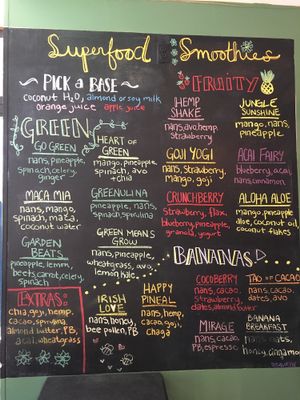 Superfood Smoothies
~ PICK a BASE ~
coconut H2O, almond or soy milk
orange juice apple juice
GREEN
GO GREEN
nans, pineapple,
spinach, celery,
ginger
HEART OF
GREEN
mango, pineapple,
spinach, avo
+ chia
MACA MIA
nans, mango,
spinach, maca,
coconut water
GREENULINA
pineapple, nans,
spinach, spirulina
GARDEN
BEATS
pineapple, lemon,
beets, carrot, celery,
spinach
GREEN MEANS
GROW
nans, pineapple,
wheatgrass, avo,
lemon, kale
EXTRAS:
chia, goji, hemp,
cacao, spirulina
almond butter, PB,
acai, wheatgrass
IRISH
LOVE
nans, honey,
bee pollen, PB
HAPPY
PINEAL
nans, hemp,
cacao, goji,
chaga
FRUITY
HEMP
SHAKE
nans, avo, hemp,
strawberry
JUNGLE
SUNSHINE
mango, nans,
pineapple
GOJI YOGI
nans, strawberry,
mango, goji
ACAI FAIRY
blueberry, acai,
nans, cinnamon
CRUNCHBERRY
strawberry, flax,
blueberry, pineapple,
granola, yogurt
ALOHA ALOE
mango, pineapple
aloe, coconut oil,
coconut flakes
BANANAS
COCOBERRY
nans, cacao,
strawberry,
dates, almond butter
TAO OF CACAO
nans, cacao,
dates, avo
MIRAGE
nans, cacao,
PB, espresso
BANANA
BREAKFAST
nans, oats,
honey, cinnamon